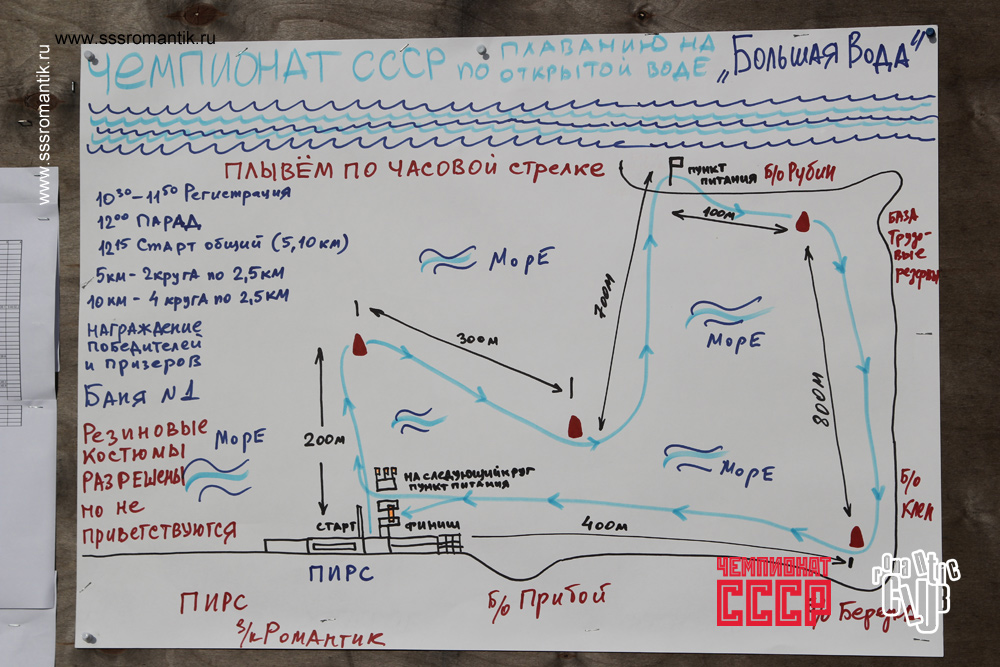 www.sssromantik.ru
www.sssromantik.ru
ЧЕМПИОНАТ СССР ПО ПЛАВАНИЮ НА ОТКРЫТОЙ ВОДЕ „БОЛЬШАЯ ВОДА"
ПЛЫВЁМ ПО ЧАСОВОЙ СТРЕЛКЕ
10³⁰–11⁵⁰ Регистрация
12⁰⁰ ПАРАД
12¹⁵ СТАРТ ОБЩИЙ (5,10 КМ)
5КМ – 2КРУГА ПО 2,5КМ
10КМ – 4 КРУГА ПО 2,5КМ
НАГРАЖДЕНИЕ
ПОБЕДИТЕЛЕЙ
И ПРИЗЕРОВ
БАНЯ №1
РЕЗИНОВЫЕ
КОСТЮМЫ
РАЗРЕШЕНЫ
НО НЕ
ПРИВЕТСТВУЮТСЯ
ПУНКТ
ПИТАНИЯ
Б/О РУБИН
100М
БАЗА
ТРУДО-
ВЫЕ
РЕЗЕРВЫ
МОРЕ
700М
МОРЕ
300М
800М
200М
МОРЕ
МОРЕ
НА СЛЕДУЮЩИЙ КРУГ
ПУНКТ ПИТАНИЯ
Б/О
КЛЕН
СТАРТ
ФИНИШ
400М
ПИРС
ПИРС
З/К РОМАНТИК
Б/О ПРИБОЙ
ЧЕМПИОНАТ
СССР
romantic